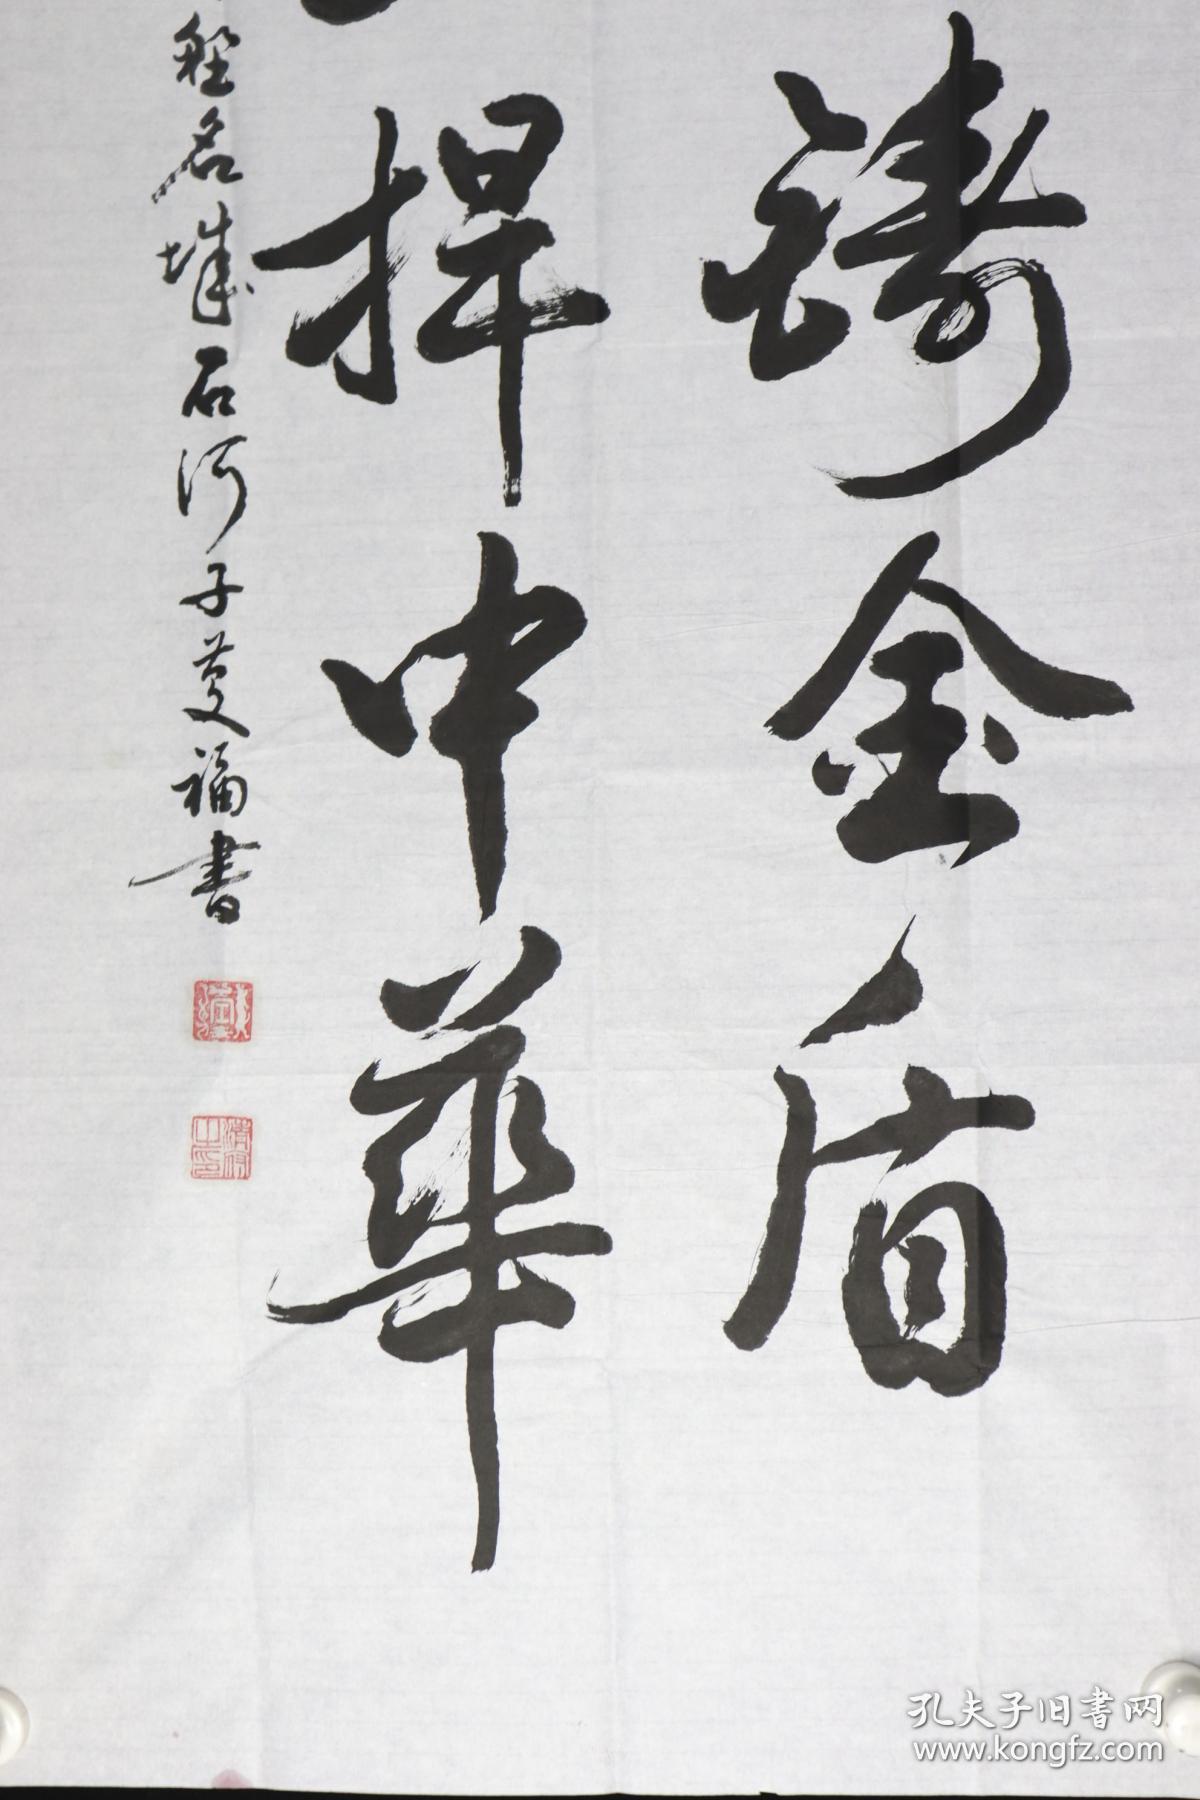 鑄金盾
捍中華
名城石河子蔓福書
孔夫子旧書网
www.kongfz.com